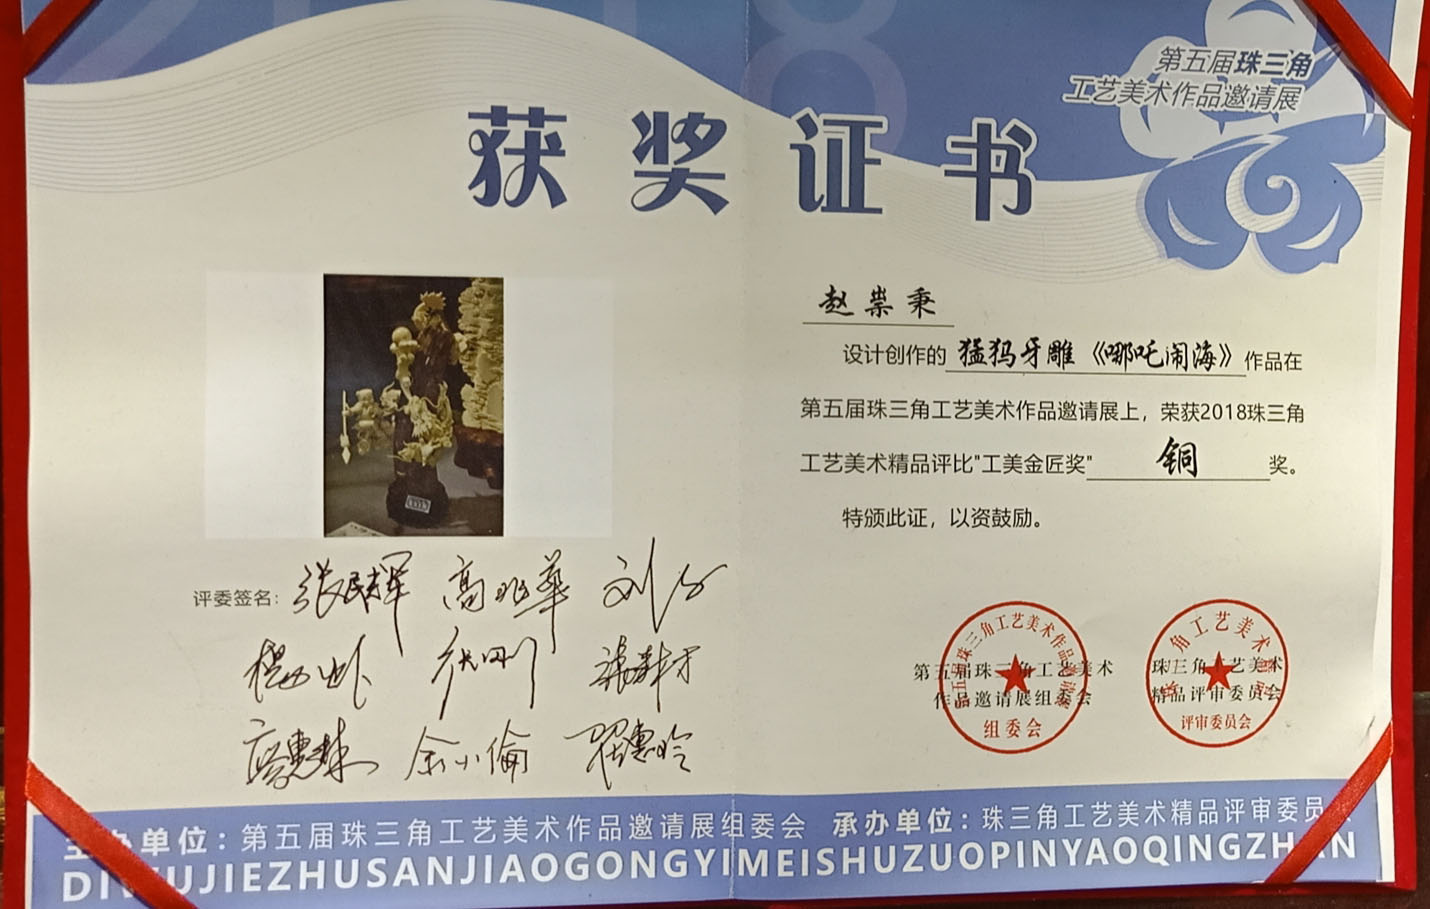 第五届珠三角
工艺美术作品邀请展
获奖证书
赵崇秉
设计创作的 猛犸牙雕《哪吒闹海》作品在
第五届珠三角工艺美术作品邀请展上，荣获2018珠三角
工艺美术精品评比"工美金匠奖" 铜 奖。
特颁此证，以资鼓励。
评委签名：张民辉 高兆华 刘
余小倫 翟惠玲
第五届珠三角工艺美术
作品邀请展组委会
组委会
珠三角工艺美术
精品评审委员会
评审委员会
主办单位：第五届珠三角工艺美术作品邀请展组委会 承办单位：珠三角工艺美术精品评审委员会
DIWUJIEZHUSANJIAOGONGYIMEISHUZUOPINYAOQINGZHAN